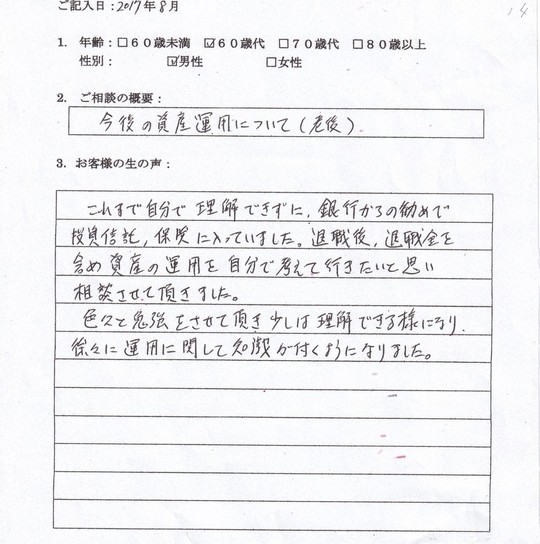 ご記入日：2017年8月
14
1. 年齢：□６０歳未満 ☑６０歳代 □７０歳代 □８０歳以上
性別： ☑男性 □女性
2. ご相談の概要：
今後の資産運用について（老後）
3. お客様の生の声：
これまで自分で理解できずに、銀行からの勧めで
投資信託，保険に入っていました。退職後，退職金を
含め資産の運用を自分で考えて行きたいと思い
相談させて頂きました。
色々と勉強をさせて頂き少しは理解できる様になり、
徐々に運用に関して知識が付くようになりました。